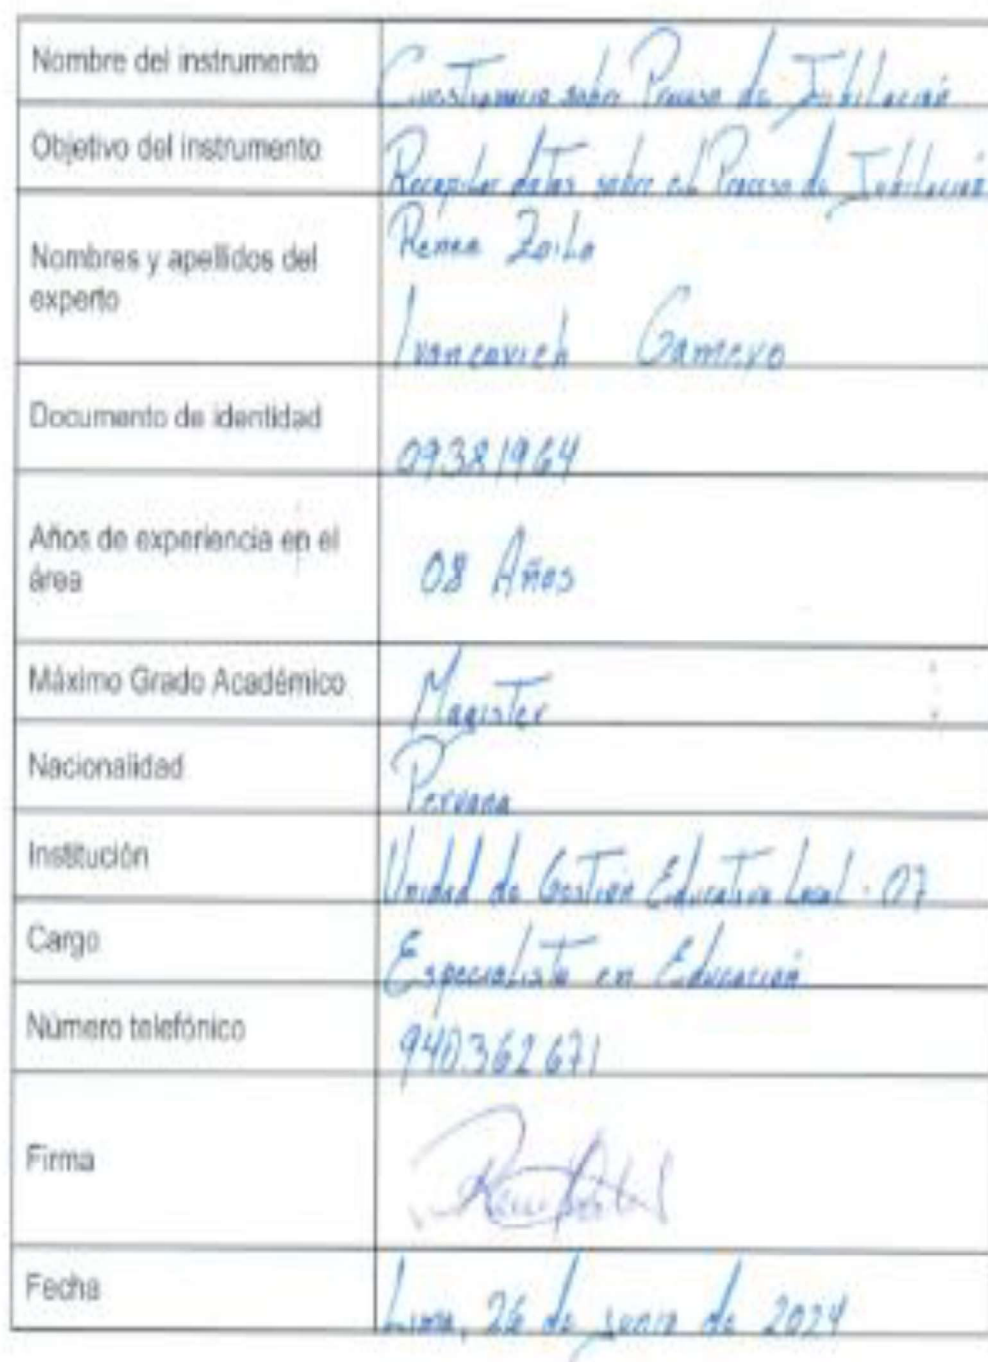 Nombre del instrumento
Cuestionario sobre Proceso de Jubilación
Objetivo del instrumento
Recopilar datos sobre el Proceso de Jubilación
Nombres y apellidos del
experto
Renee Zoila
Ivancovich Gamero
Documento de identidad
09381964
Años de experiencia en el
área
08 Años
Máximo Grado Académico
Magister
Nacionalidad
Peruana
Institución
Unidad de Gestión Educativa Local - 07
Cargo
Especialista en Educación
Número telefónico
940362671
Firma
Fecha
Lima, 26 de junio de 2024